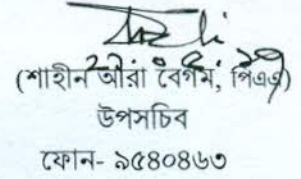 (শাহীন আরা বেগম, পিএএ)
উপসচিব
ফোন- ৯৫৪০৪৬৩